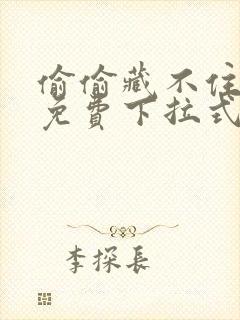 偷偷藏不住
免費下拉式
李探長